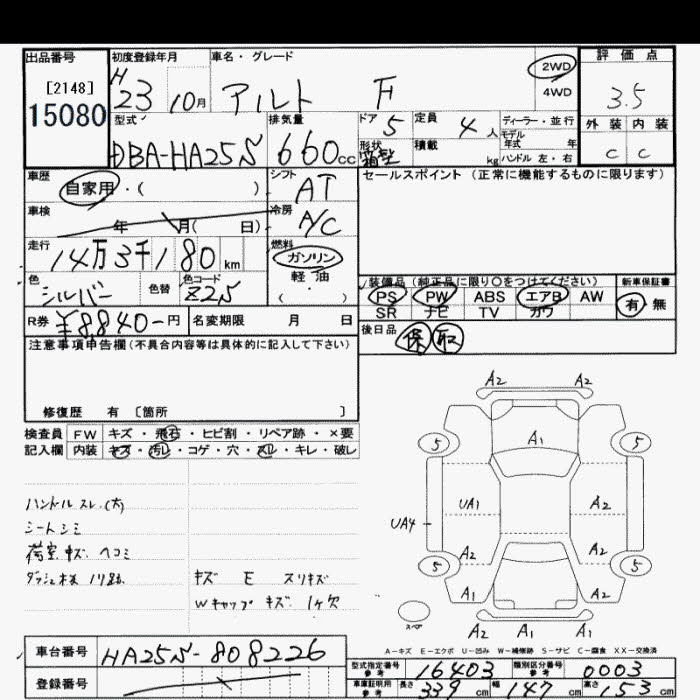 出品番号
[2148]
15080
初度登録年月
H
23 10月
車名・グレード
アルト F
2WD
4WD
評価点
3.5
外装 内装
C C
型式
DBA-HA25S
排気量
660cc
ドア 5
定員 4人
ディーラー・並行
モデル
年式 年
形状 箱型
積載 kg
ハンドル 左・右
車歴
自家用・( )
シフト
AT
セールスポイント (正常に機能するものに限ります)
車検
年 月( 日)
冷房
A/C
走行
14万3千180km
燃料
ガソリン
軽・油
( ・ )
色
シルバー
色替
色コード
Z2S
装備品 (純正品に限り○をつけてください)
PS PW ABS エアB AW
SR ナビ TV カワ
新車保証書
有・無
R券 ¥8840-円
名変期限 月 日
後日品
保 取
注意事項申告欄 (不具合内容等は具体的に記入して下さい)
修復歴 有 [箇所 ]
検査員 FW キズ・飛石・ヒビ割・リペア跡・×要
記入欄 内装 キズ・汚レ・コゲ・穴・スレ・キレ・破レ
ハンドル スレ.(大)
シートシミ
荷室 キズ ヘコミ
ダッシュ板 ノリ跡
キズ E スリキズ
Wキャップ キズ 1ヶ欠
A2 A2
5 A1 5
UA1 A2
UA4
A2 A2
5 5
A1 A2
スペア
A2 A1 A1
A-キズ E-エクボ U-凹み W-補修跡 S-サビ C-腐食 XX-交換済
車台番号 HA25S-808226
登録番号
型式指定番号 参考 16403
類別区分番号 参考 0003
車庫証明用 参考 長さ 339cm 幅 147cm 高さ 153cm